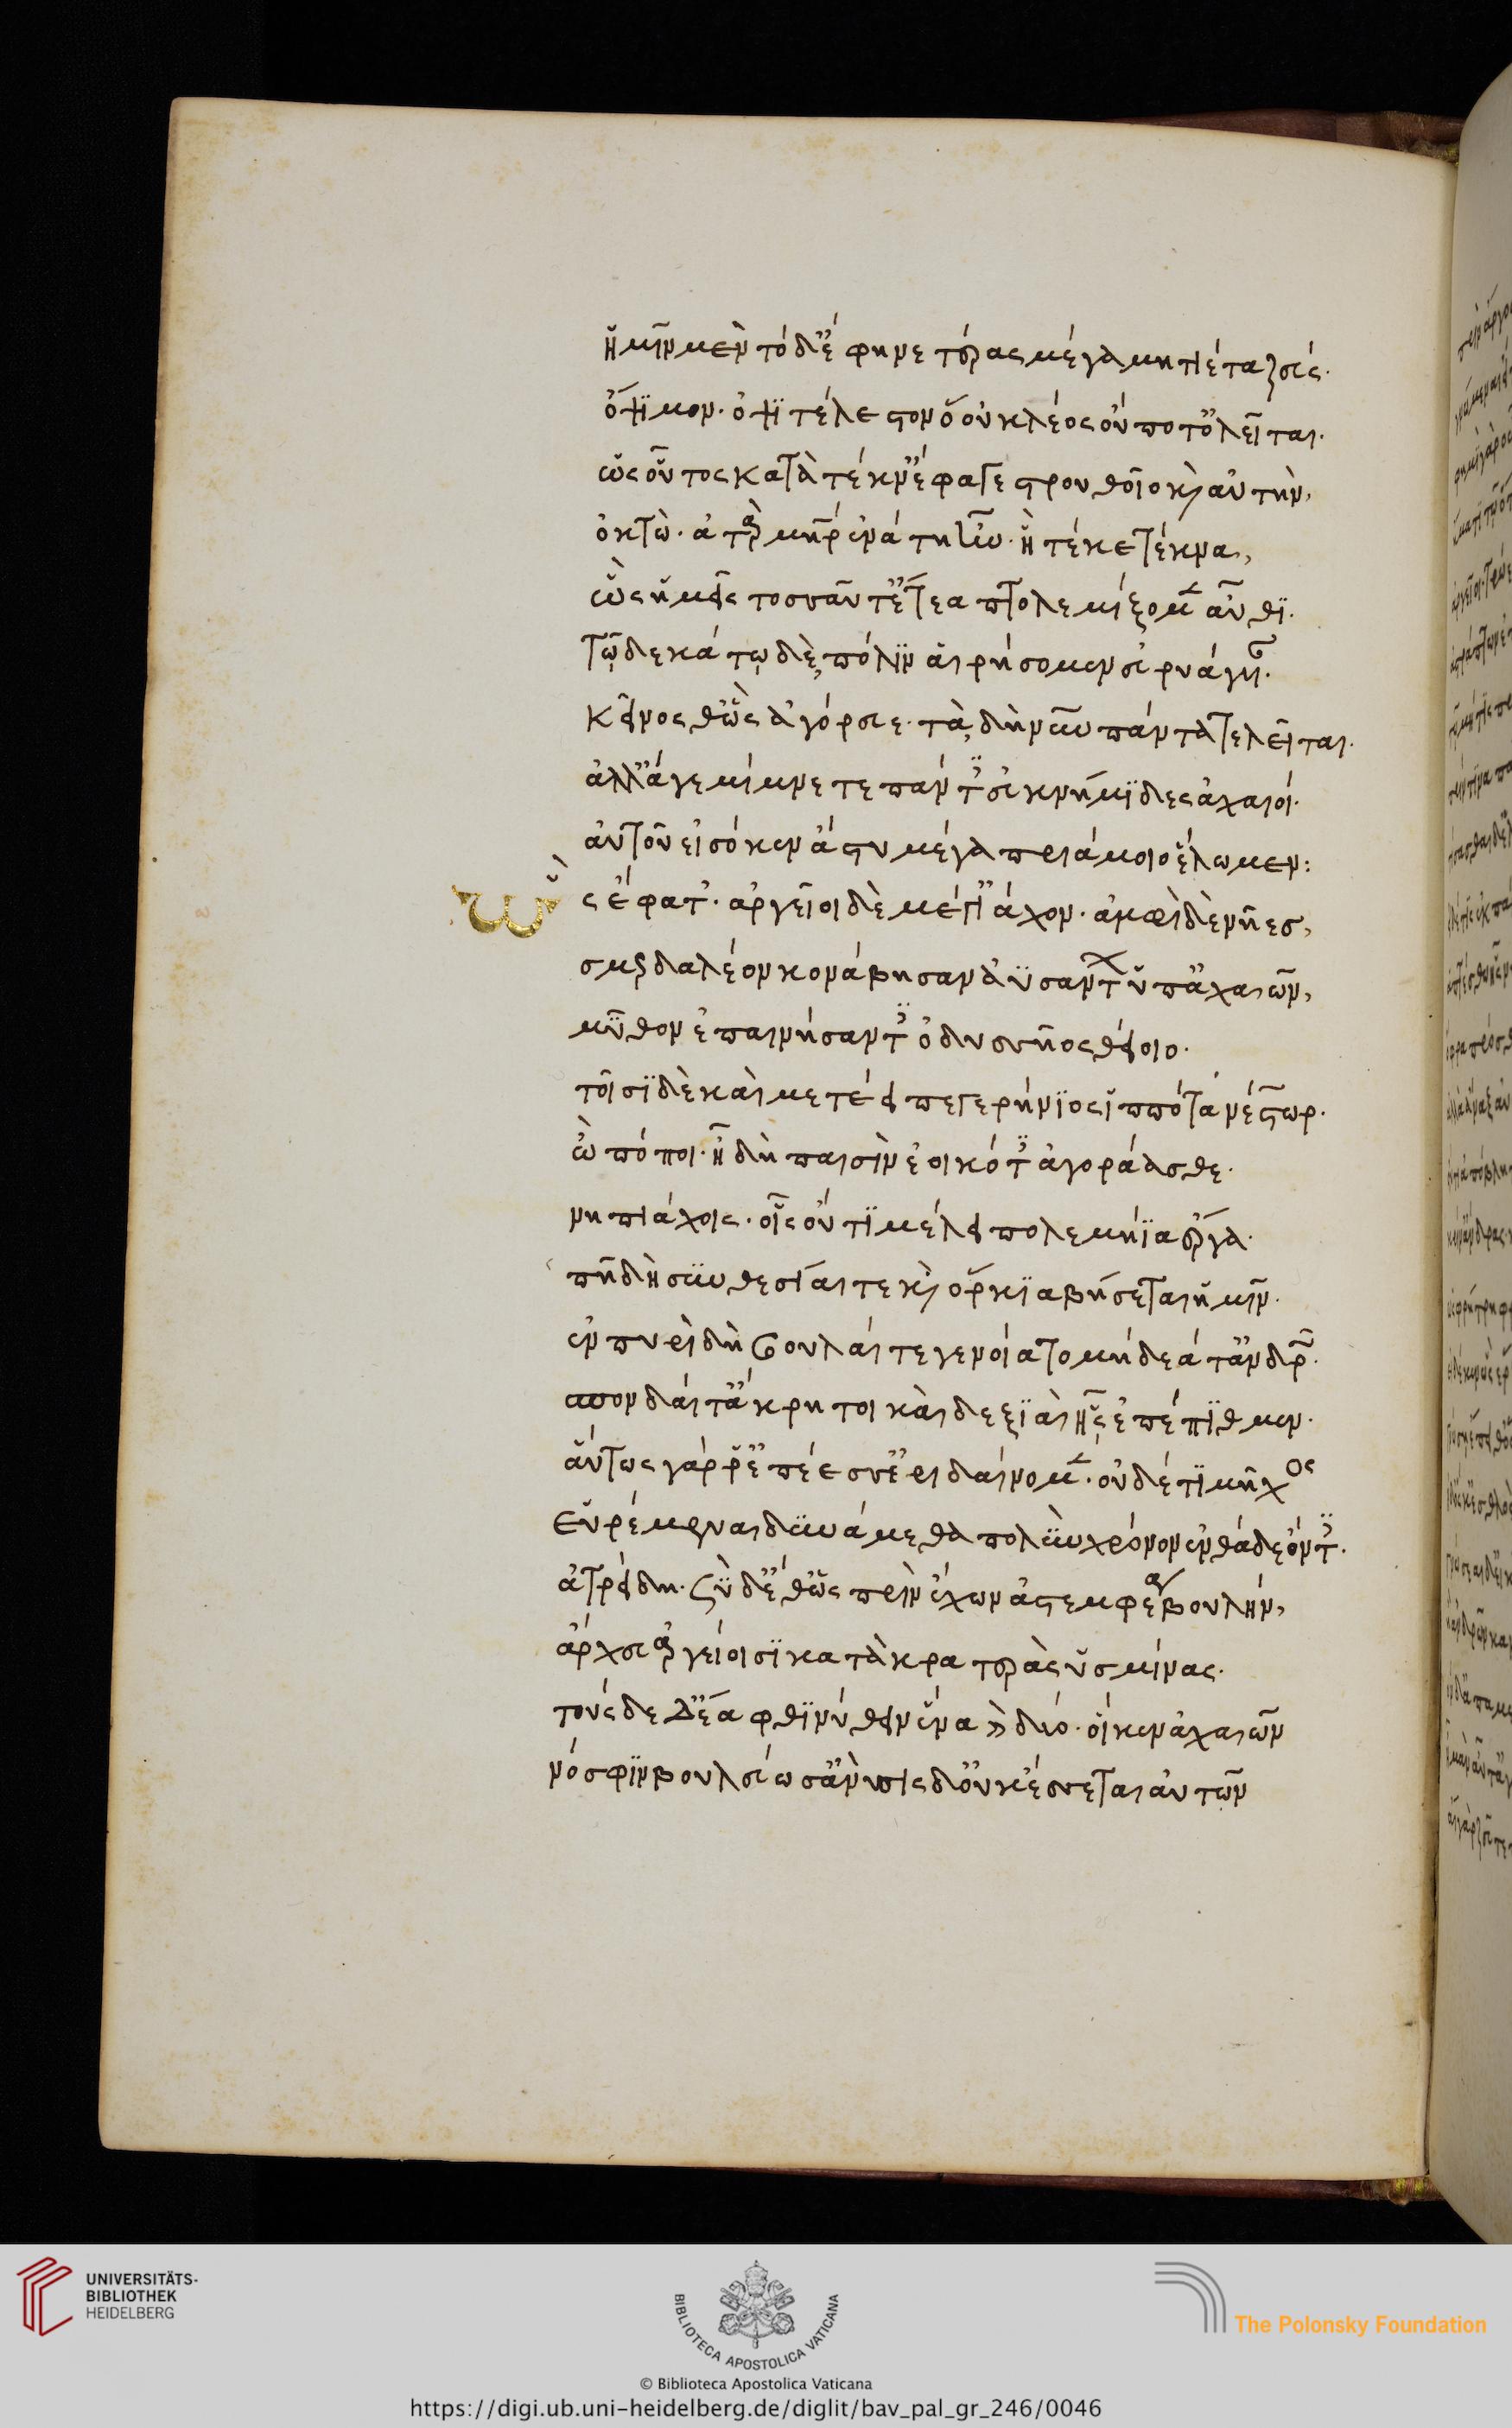 ἡμῖν μὲν τόδ' ἔφηνε τέρας μέγα μητίετα ζεύς.
ὄψιμον. ὀψιτέλεστον ὅου κλέος οὔποτ' ὀλεῖται.
ὡς οὗτος κατὰ τέκν' ἔφαγε στρουθοῖο κὶ αὐτὴν,
ὀκτώ. ἀτὰρ μήτηρ ἐνάτη ἦν. ἣ τέκε τέκνα,
ὣς ἡμεῖς τοσσαῦτ' ἔτεα πτολεμίξομεν αὖθι.
τῷ δεκάτῳ δὲ πόλιν αἱρήσομεν εὐρυάγυιαν.
κεῖνος θ' ὣς ἀγόρευε. τὰ δὴ νῦν πάντα τελεῖται.
ἀλλ' ἄγε μίμνετε πάντες ἐϋκνήμιδες ἀχαιοί.
αὐτοῦ εἰσόκεν ἄστυ μέγα πριάμοιο ἕλωμεν:
ὣς ἔφατ'. ἀργεῖοι δὲ μέγ' ἴαχον. ἀμφὶ δὲ νῆες,
σμερδαλέον κονάβησαν ἀϋσάντων ὑπ' ἀχαιῶν,
μῦθον ἐπαινήσαντες ὀδυσσῆος θείοιο.
τοῖσι δὲ καὶ μετέειπε γερήνιος ἱππότα νέστωρ.
ὢ πόποι. ἦ δὴ παισὶν ἐοικότες ἀγοράασθε.
νηπιάχοις. οἷς οὔτι μέλει πολεμήια ἔργα.
πῆ δὴ συνθεσίαι τε κὶ ὅρκια βήσεται ἡμῖν.
ἐν πυρὶ δὴ βουλαί τε γενοίατο μήδεά τ' ἀνδρῶν.
σπονδαί τ' ἄκρητοι καὶ δεξιαὶ ᾗς ἐπέπιθμεν.
αὕτως γάρ ῥ' ἐπέεσσ' ἐριδαίνομεν. οὐδέ τι μῆχος
εὑρέμεναι δυνάμεθα πολὺν χρόνον ἐνθάδ' ἐόντες.
ἀτρείδη. σὺ δ' ἔθ' ὡς πρὶν ἔχων ἀστεμφέα βουλὴν,
ἄρχευ ἀργείοισι κατὰ κρατερὰς ὑσμίνας.
τούςδε δ' ἔα φθινύθειν ἕνα κὶ δύο. οἵ κεν ἀχαιῶν
νόσφιν βουλεύωσ' ἄνυσις δ' οὐκ ἔσσεται αὐτῶν
UNIVERSITÄTS-
BIBLIOTHEK
HEIDELBERG
BIBLIOTECA APOSTOLICA VATICANA
The Polonsky Foundation
© Biblioteca Apostolica Vaticana
https://digi.ub.uni-heidelberg.de/diglit/bav_pal_gr_246/0046